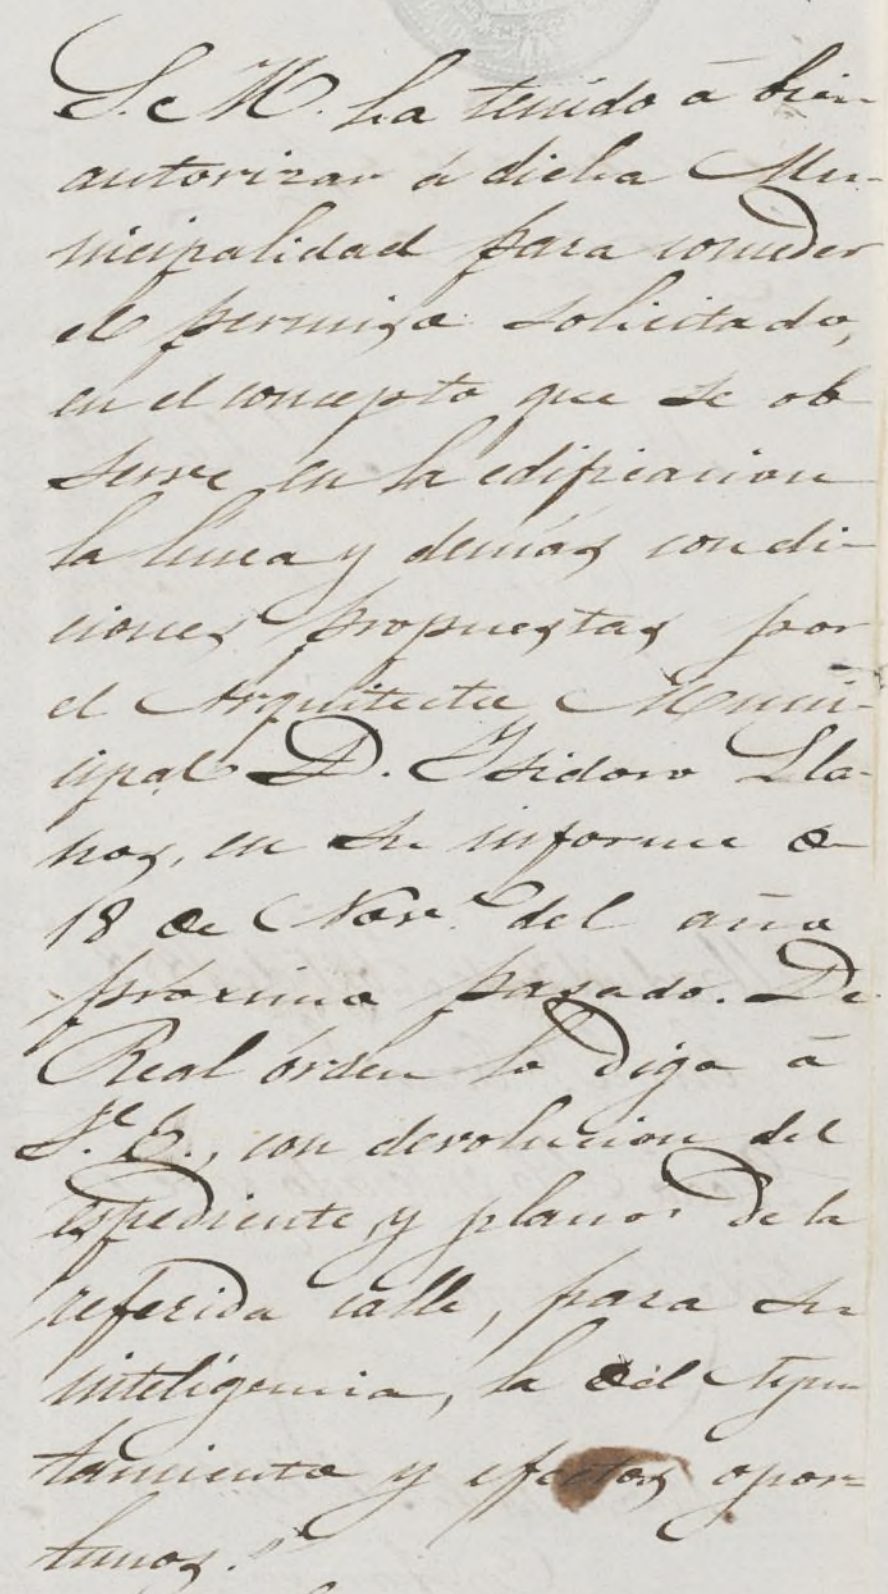 S. M. ha tenido á bien
autorizar á dicha Mu-
nicipalidad para conceder
el permiso solicitado,
en el concepto que se ob
serve en la edificacion
la linea y demás condi-
ciones propuestas por
el Arquitecto Muni-
cipal D. Isidoro Lla-
nos, en su informe de
18 de Nove. del año
próximo pasado. De
Real órden lo digo á
V. E., con devolucion del
espediente y planos de la
referida calle, para su
inteligencia, la del Ayun
tamiento y efectos opor-
tunos."